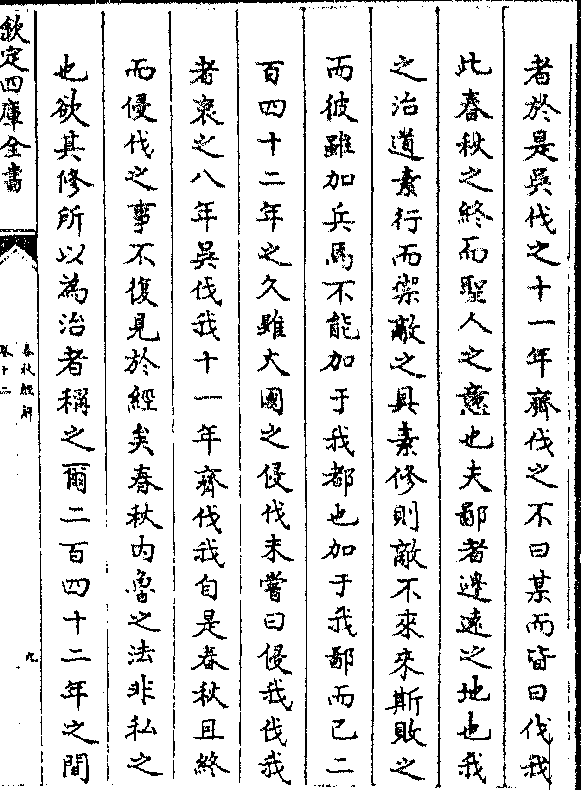 者於是吳伐之十一年齊伐之不曰某而皆曰伐我
此春秋之終而聖人之意也夫鄙者邊遠之地也我
之治道素行而禦敵之具素修則敵不來來斯敗之
而彼雖加兵焉不能加于我都也加于我鄙而已二
百四十二年之久雖大國之侵伐未嘗曰侵我伐我
者哀之八年吳伐我十一年齊伐我自是春秋且終
而侵伐之事不復見於經矣春秋內魯之法非私之
也欲其修所以為治者稱之爾二百四十二年之間
欽定四庫全書
春秋經解
卷十二
九